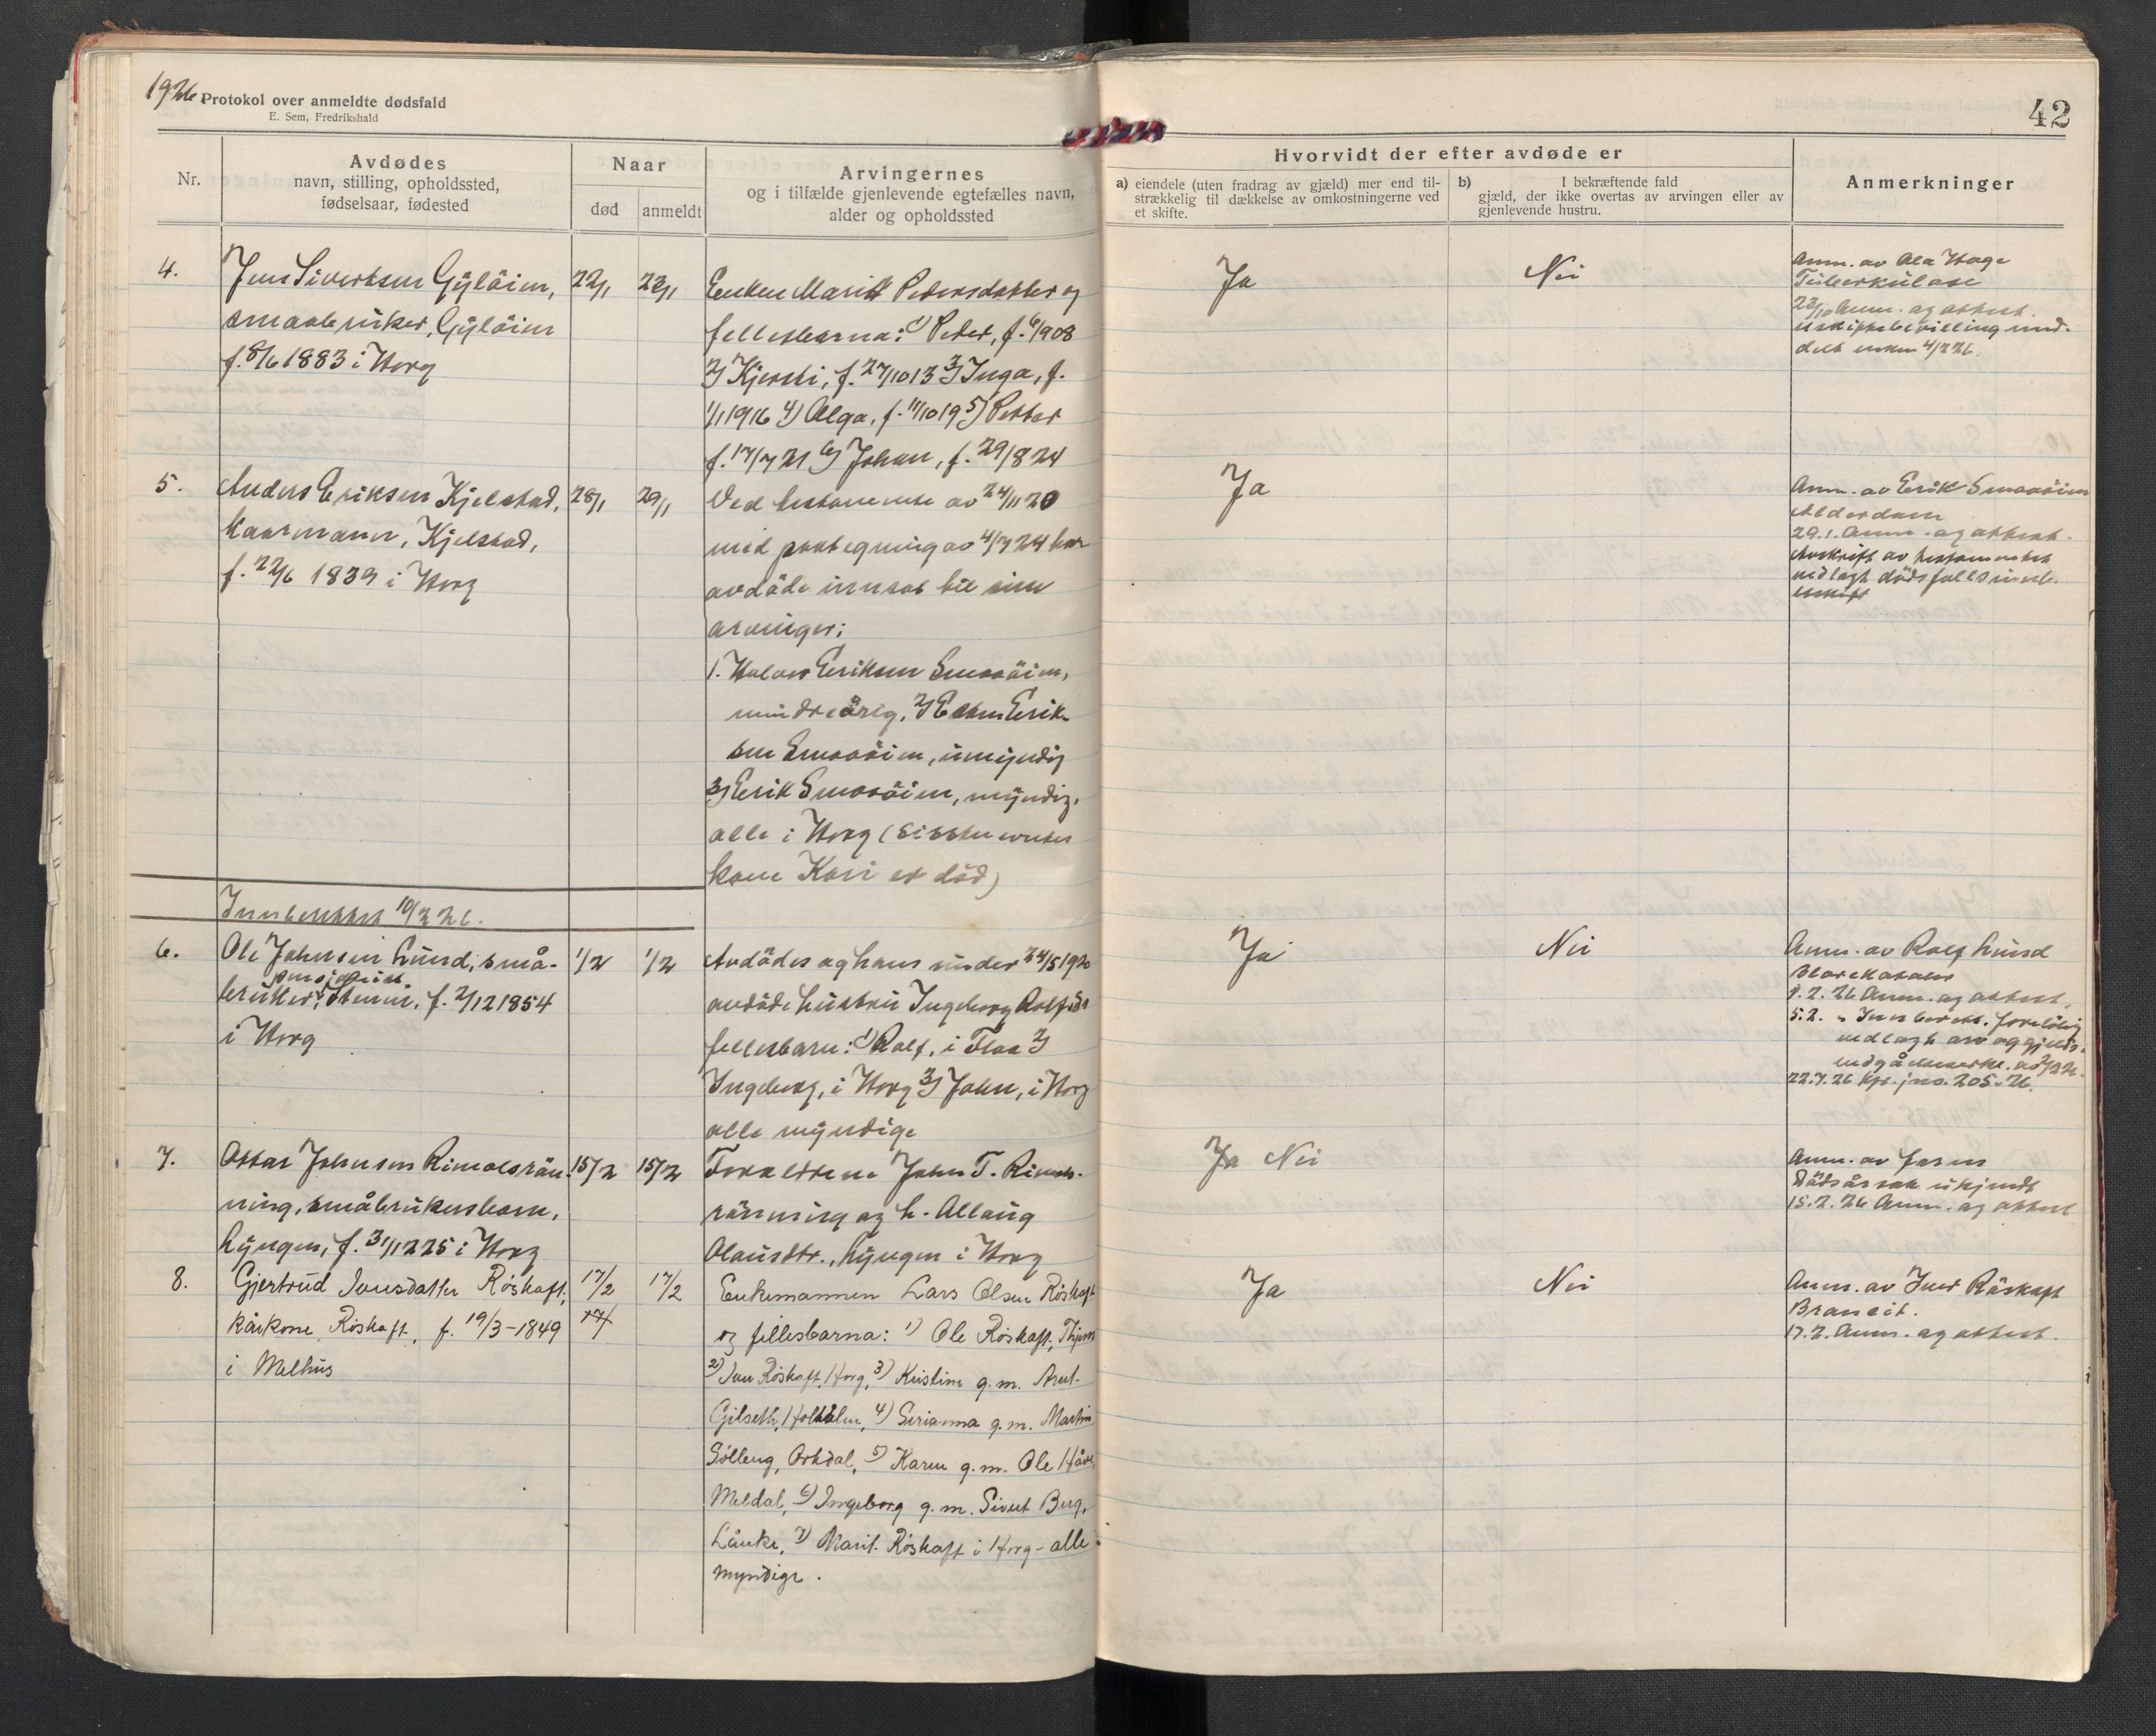 1926.
Protokol over anmeldte dødsfald
E. Sem, Fredrikshald
42
Nr.
Avdødes
navn, stilling, opholdssted,
fødselsaar, fødested
Naar
død
anmeldt
Arvingernes
og i tilfælde gjenlevende egtefælles navn,
alder og opholdssted
Hvorvidt der efter avdøde er
a) eiendele (uten fradrag av gjæld) mer end til-
strækkelig til dækkelse av omkostningerne ved
et skifte.
b) I bekræftende fald
gjæld, der ikke overtas av arvingen eller av
gjenlevende hustru.
Anmerkninger
4.
Jens Sivertsen Gylöim,
smaabruker, Gylöim
f. 8/6 1883 i Horg
22/1
23/1
Enken Marit Pedersdatter og
fellesbarna: 1) Peder, f. 6/908
2) Kjersti, f. 27/10 13 3) Inga, f.
1/1 1916 4) Olga, f. 11/10 19 5) Petter
f. 17/7 21 6) Johan, f. 29/8 24
Ja
Nei
Anm. av Ola Hage
Tuberkulose
Anm. og attest.
uskiftebevilling med-
delt enken 4/2 26.
5.
Anders Eriksen Kjelstad,
kaarmann, Kjelstad,
f. 22/6 1839 i Horg
28/1
29/1
Ved testamente av 24/11 20
med paategning av 4/7 24 har
avdöde innsat til sine
arvinger:
1. Halvor Eriksen Smaaöim,
mindreårig, 2) Esten Erik-
sen Smaaöim, umyndig
3) Erik Smaaöim, myndig,
alle i Horg (Sistnevntes
kone Kari er död)
Ja
Anm. av Erik Smaaöim
Alderdom
29.1. Anm. og attest.
Avskrift av testamentet
vedlagt dödsfallsinnb.
Innberettet 10/2 26.
6.
Ole Johnsen Lund, små-
bruker, Stenm, f. 2/12 1854
i Horg
1/2
1/2
Avdödes og hans under 24/5 1920
avdöde hustru Ingeborg Rolfsdtr
fellesbarn: 1) Rolf, i Flaa 2)
Ingeborg, i Horg 3) John, i Horg
alle myndige
Ja
Nei
Anm. av Rolf Lund
1.2.26 Anm. og attest.
5.2. " Innberett. foreløbig
vedlagt arv og gjelds-
vedgåelseserkl. av 2/2 26.
22.7.26 Kfr. jno. 205.26.
7.
Ottar Johnsen Rimolsrön-
ning, småbrukersbarn,
Lyngen, f. 31/12 25 i Horg
15/2
15/2
Foreldrene John T. Rimols-
rönning og h. Allaug
Olausdtr., Lyngen i Horg
Ja Nei
Anm. av faren
Dödsårsak ukjendt
15.2.26 Anm. og attest
8.
Gjertrud Iversdatter Röskaft,
kårkone, Röskaft, f. 19/3-1849
i Melhus
17/2
17/
17/2
Enkemannen Lars Olsen Röskaft
og fellesbarna: 1) Ole Röskaft,
2) Iver Röskaft, Horg, 3) Kristine g.m. Arnt
Gilseth, Hølonda, 4) Serianna g.m. Martin
Solleng, Orkdal, 5) Karen g.m. Ole Håve,
Meldal, 6) Ingeborg g.m. Sivert Berg,
Lånke, 7) Marit Röskaft i Horg - alle
myndige.
Ja
Nei
Anm. av Iver Röskaft
17.2. Anm. og attest.